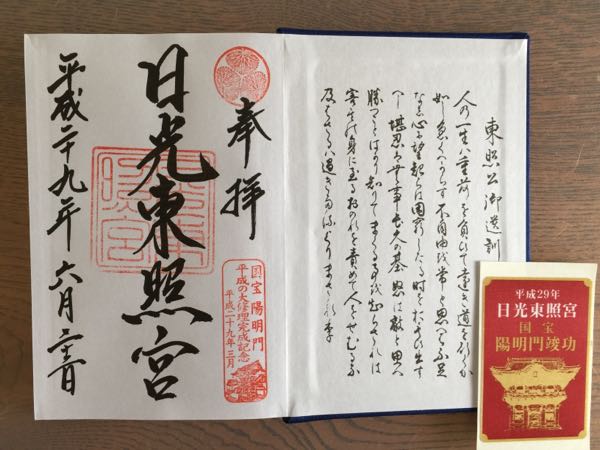 東照公御遺訓
人の一生は重荷を負ひて遠き道を行くか
如し急くへからす不自由を常と思へは不足
なし心に望起らは困窮したる時を思ひ出す
へし堪忍は無事長久の基怒は敵と思へ
勝つことはかり知りてまくる事を知らされは
害其の身に至るおのれを責めて人をせむるな
及はさるは過きたるよりまされり
奉拝
日光東照宮
国宝陽明門
平成の大修理完成記念
平成二十九年三月
平成二十九年六月
平成29年
日光東照宮
国宝
陽明門竣功